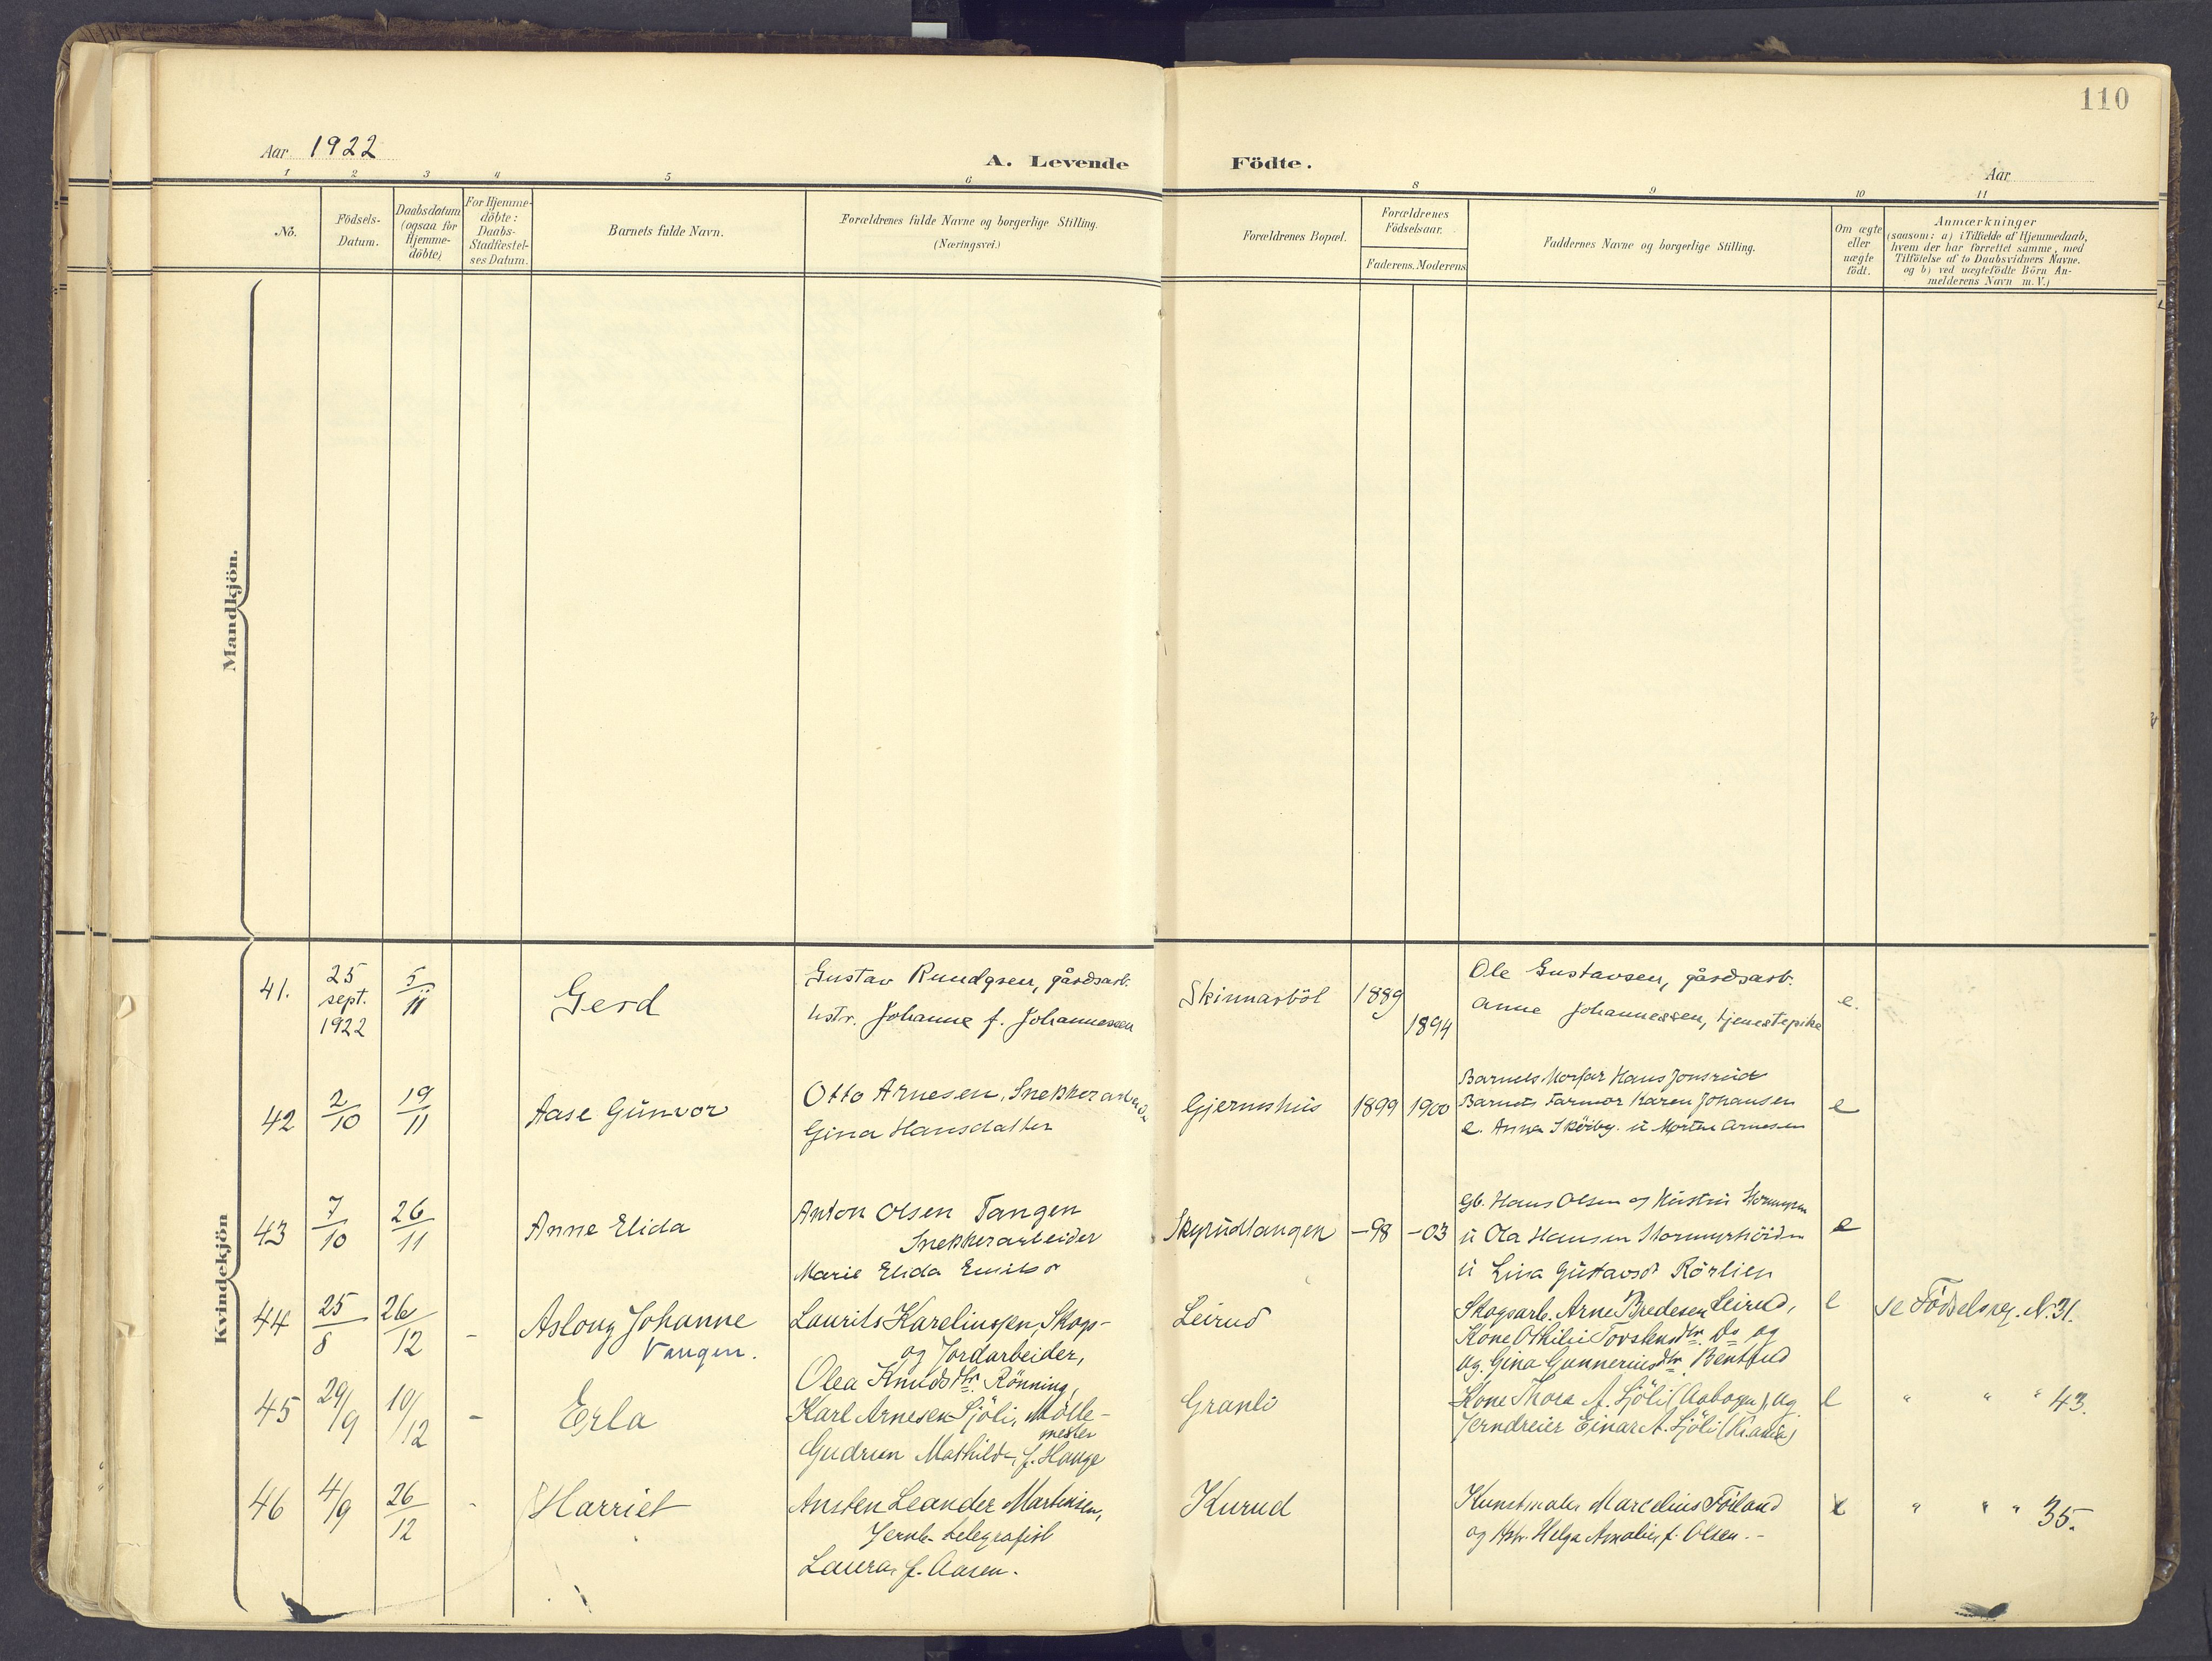 110
Aar 1922
A. Levende Födte.
Aar
1 2 3 4 5 6 8 9 10 11
No.
Födsels-
Datum.
Daabsdatum
(ogsaa for
Hjemme-
döbte)
For Hjemme-
döbte:
Daabs-
Stadfæstel-
ses Datum.
Barnets fulde Navn.
Forældrenes fulde Navne og borgerlige Stilling.
(Næringsvei.)
Forældrenes Bopæl.
Forældrenes
Födselsaar.
Faderens. Moderens
Faddernes Navne og borgerlige Stilling.
Om ægte
eller
uægte
födt.
Anmærkninger
(saasom: a) i Tilfælde af Hjemmedaab,
hvem der har forrettet samme, med
Tilföielse af to Daabsvidners Navne.
og b) ved uægtefödte Börn An-
melderens Navn m.V.)
Mandkjön.
Kvindekjön
41.
25
sept.
1922
5/11
Gerd
Gustav Rundgren, gårdsarb.
hstr. Johanne f. Johannessen
Skinnarböl
1889
1894
Ole Gustavsen, gårdsarb.
Anne Johannessen, tjenestepike
e.
42
2/10
19/11
Aase Gunvor
Otto Arnesen, Snekkerarbeider
Gina Hansdatter
Gjernshus
1899
1900
Barnets Morfar Hans Jonsrud
Barnets Farmor Karen Johansen
e. Anna u Morten Arnesen
e
43
7/10
26/11
Anne Elida
Anton Olsen Tangen
Snekkerarbeider
Marie Elida
Skyrudtangen
-98
-03
Gb. Hans Olsen og Hustru
u Ola Hansen
u Lina Gustavsd Rörlien
e
44
25/8
26/12
-
Asloug Johanne
Vangen.
Laurits Karelinssen, Skogs-
og Jordarbeider,
Olea Knudsdtr. Rönning,
Leirud
Skogsarb. Arne Bredesen Leirud,
Kone Othilie Torstensdtr. Do og
Ug. Gina Gunneriusdtr.
e
se Födselsreg. N. 31.
45
29/9
10/12
-
Erla
Karl Arnesen Sjöli, Mölle-
mester
Gudrun Mathilde, f. Hauge
Granli
Kone Thora A. Sjöli (Aabogen), og
Jerndreier Einar A. Sjöli (Kr.ania)
e
" " " 43.
46
4/9
26/12
-
Harriet
Ansten Leander Martinsen,
Jernb. telegrafist
Laura, f. Aasen.
Kurud
Kunstmaler Marcelius Förland
og Hstr. Helga Amalie, f. Olsen. -
e
" " " 35.